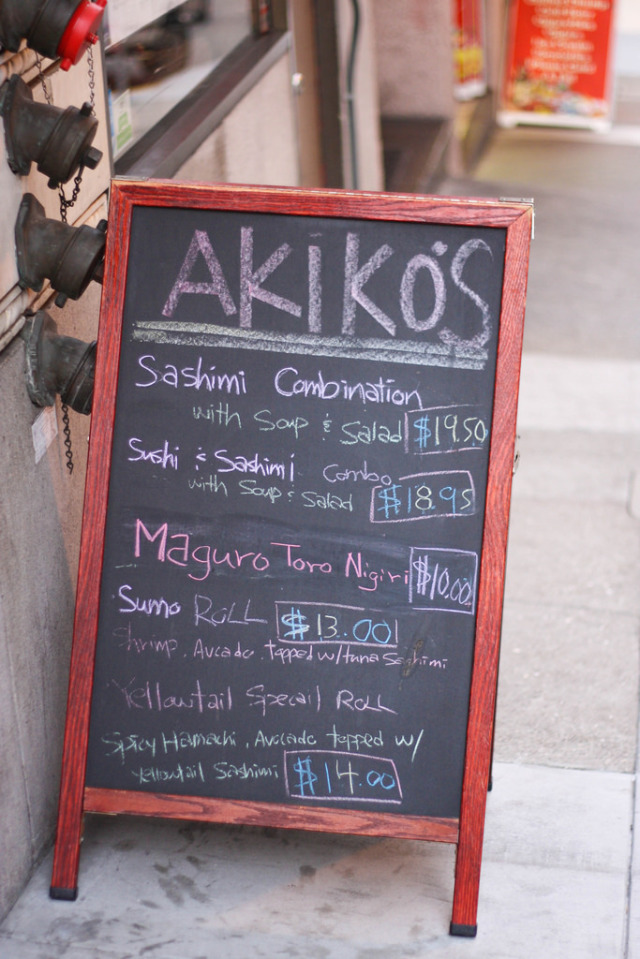 AKiKO'S
Sashimi Combination
with Soup & Salad $19.50
Sushi & Sashimi Combo
with Soup & Salad $18.95
Maguro Toro Nigiri $10.00
Sumo ROLL $13.00
Shrimp, Avocado, topped w/tuna Sashimi
Yellowtail Specail ROLL
Spicy Hamachi, Avocado topped w/
Yellowtail Sashimi $14.00